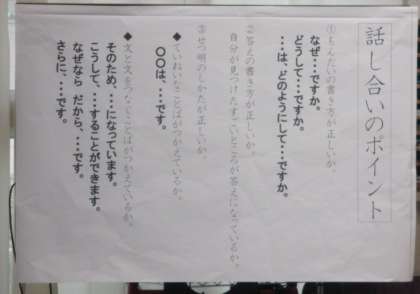 話し合いのポイント
①もんだいの書き方が正しいか。
なぜ・・・ですか。
どうして・・・ですか。
・・・は、どのようにして・・・ですか。
②答えの書き方が正しいか。
自分が見つけたすごいところが答えになっているか。
③せつ明のしかたが正しいか。
◆ていねいなことばがつかえているか。
〇〇は、・・・です。
◆文と文をつなぐことばがつかえているか。
そのため、・・・になっています。
こうして、・・・することができます。
なぜなら だから、・・・です。
さらに、・・・です。